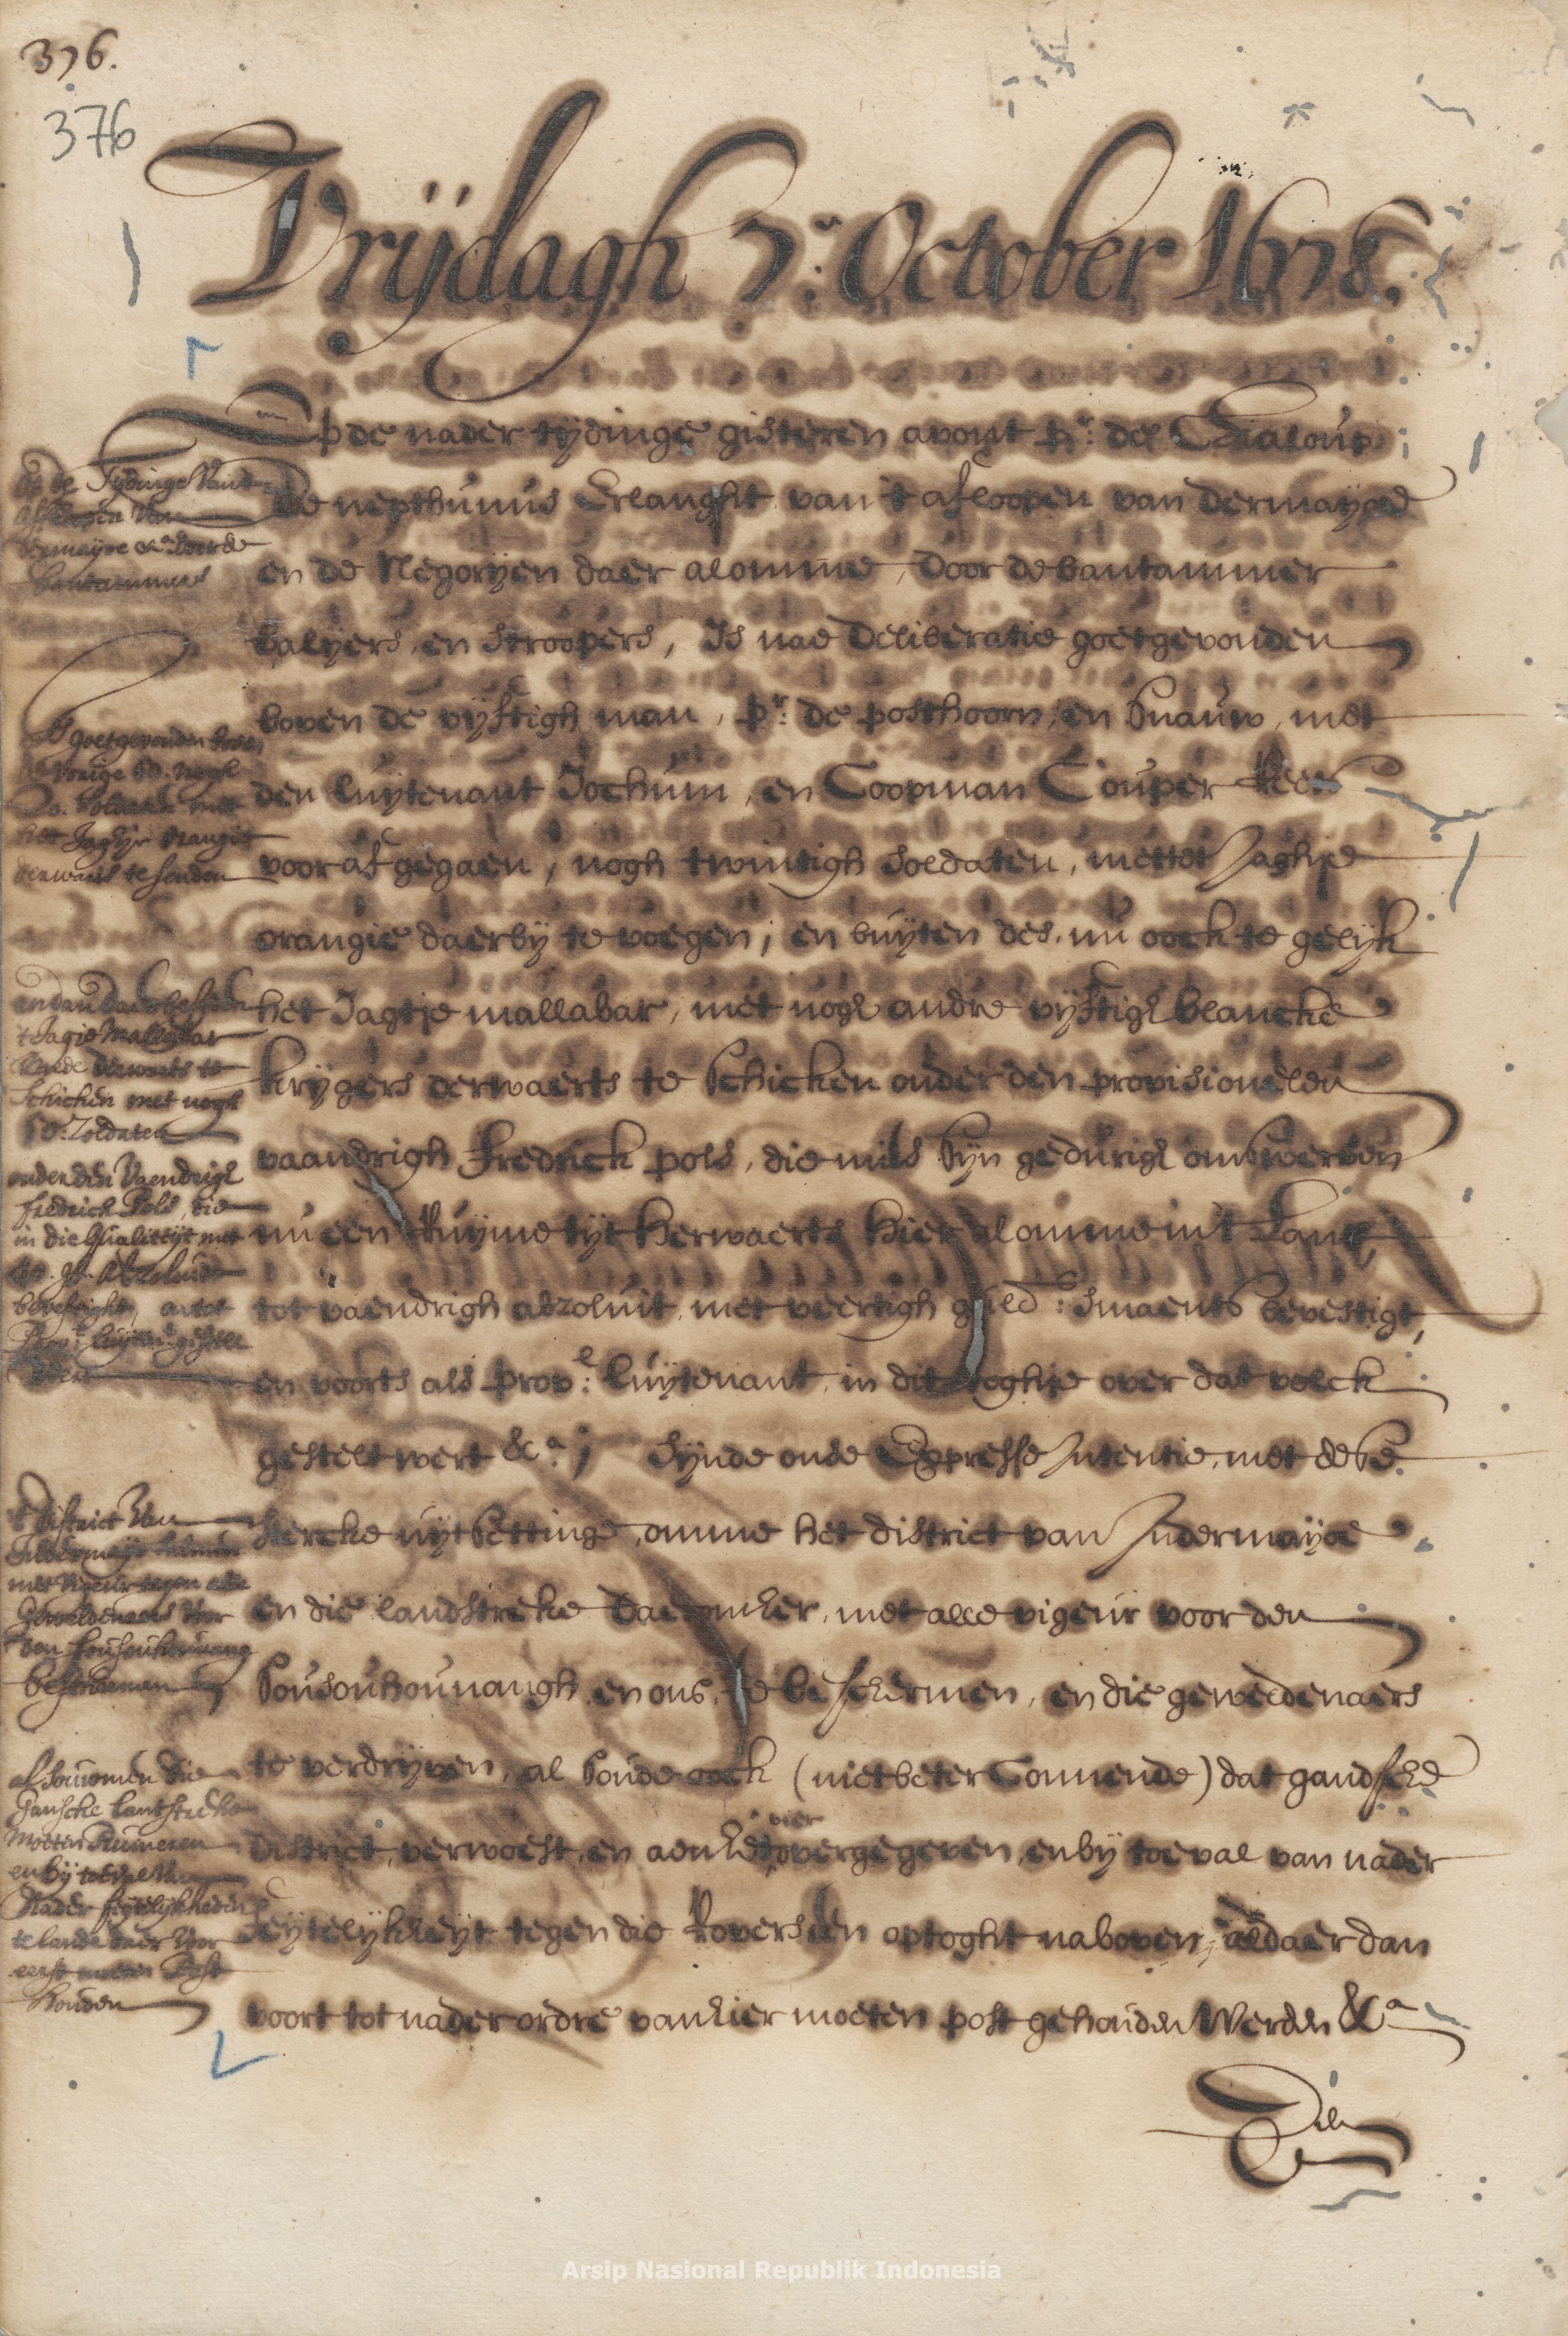 376.
376
Vrijdagh 7:en October 1678.
Op de nader tydinge gisteren avont pr: de Chaloup
de nepthunus Erlanght van 't afloopen van dermayoe
en de Negoryen daer alomme, door de bantammer
balyers, en stroopers, Is nae Deliberatie goetgevonden
boven de vyftigh man, pr: de posthoorn, en Snauw, met
den luytenant Jochum, en Coopman Couper Reets
voor af gegaen, nogh twintigh soldaten, mettet Jaghje
orangie daerby te voegen; en buyten des, nu oock te gelyk
het Jagtje mallabar, met nogh andre vyftigh blancke
krygers derwaerts te Schicken onder den provisionelen
vaandrigh Fredrick pols, die mits Syn gedurigh omswerven
nu een Ruyme tyt herwaerts hier alomme int Lant,
tot vaendrigh absoluit, met veertigh guld:s Smaents bevestigt,
en voorts als prov:e luytenant, in dit toghje over dat volck
gestelt wert &a; Synde onse Expresse Intentie, met dese
stercke uyt Settinge, omme het district van Indermayoe
en die landstreke daeromher, met alle vigeur voor den
Sousouhounangh, en ons, te beschermen, en die geweldenaers
te verdryven, al Soude oock (niet beter Connende) dat gandsche
district, verwoest, en aen het vier overgegeven, en by toeval van nader
feytelykheyt tegen die Rovers den optoght naboven, aldaer dan
voort tot nader ordre van hier moeten post gehouden Werden &a
Op de Tydinge Vant
affloopen Van
dermayoe &a door de
bantammers
Is goetgevonden boven
de vorige 50. nogh
20. soldaten met
het Jaghje Orangie
derwaerts te senden
en dan daer beneffens
't Jagie Mallabar
mede derwaerts te
Schicken met nogh
50: Zoldaten
onder den Vaendrigh
fredrick Pols, die
in die qualiteyt met
40. gl. Absoluut
bevestight, en tot
Prov:l luytent gestelt
wert
't District Van
Indermayoe
met vigeur tegen alle
geweldenaers Voor
den Sousouhounang
beschermen
al Souwmen die
gansche lantstreke
moeten Ruineren
en by toeval Van
Nader feytelykheden
te lande daer Voor
eerst moeten Post
Houden
Den
Arsip Nasional Republik Indonesia